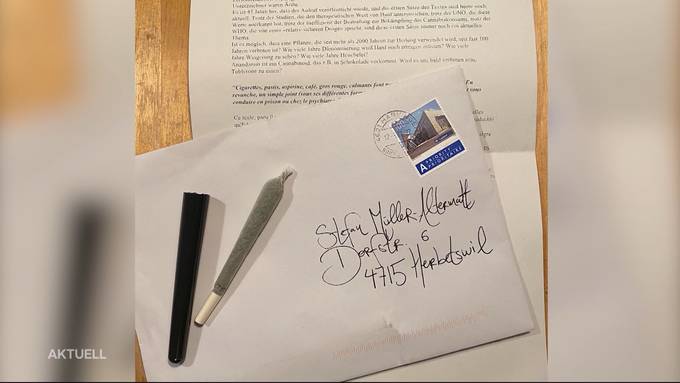 Unterzeichner waren Ärzte.
Es ist 45 Jahre her, dass der Aufruf veröffentlicht wurde, und die ersten Sätze des Textes sind heute noch
aktuell. Trotz der Studien, die den therapeutischen Wert von Hanf unterstreichen, trotz der UNO, die diese
Werte anerkannt hat, trotz der Ineffizienz der Bestrafung zur Bekämpfung des Cannabiskonsums, trotz der
WHO, die von einer relativ sicheren Droge spricht, sind diese ersten Sätze immer noch ein aktuelles
Thema.
Ist es möglich, dass eine Pflanze, die seit mehr als 2000 Jahren zur Heilung verwendet wird, seit fast 100
Jahren verboten ist? Wie viele Jahre Dämonisierung wird Hanf noch ertragen müssen? Wie viele
Jahre Weigerung zu sehen? Wie viele Jahre Heuchelei?
Anandamid ist ein Cannabinoid, das z.B. in Schokolade vorkommt. Wird es uns bald verboten sein,
Toblerone zu essen?
"Cigarettes, pastis, aspirine, café, gros rouge, calmants font
revanche, un simple joint (sous ses différentes
conduire en prison ou chez le psychiatre
Ce texte, paru
A PRIORITY
PRIORITAIRE
Stefan Müller-Altermatt
Dorfstr. 6
4715 Herbetswil
AKTUELL